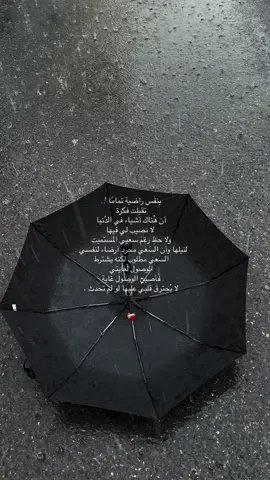 بنفس راضية تمامًا !..
تقبلت فكرة
أن هُناك أشياء في الدُنيا
لا نصيب لي فيها
ولا حظ رغم سعيي المُستميت
لنيلها وأن السعي مجرد أرضاء لنفسي
السعي مطلوب لكنه يشترط
الوصول لغايتي
فأصبح الوصول غاية
لا يحترق قلبي عليها لو لم تحدث ،